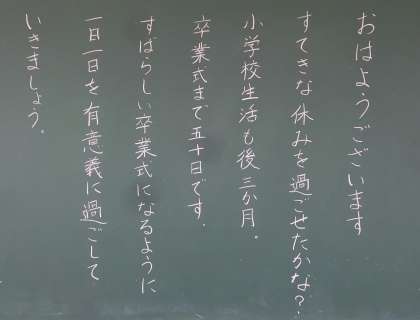 おはようございます
すてきな休みを過ごせたかな?
小学校生活も後三か月。
卒業式まで五十日です.
すばらしい卒業式になるように
一日一日を有意義に過ごして
いきましょう。